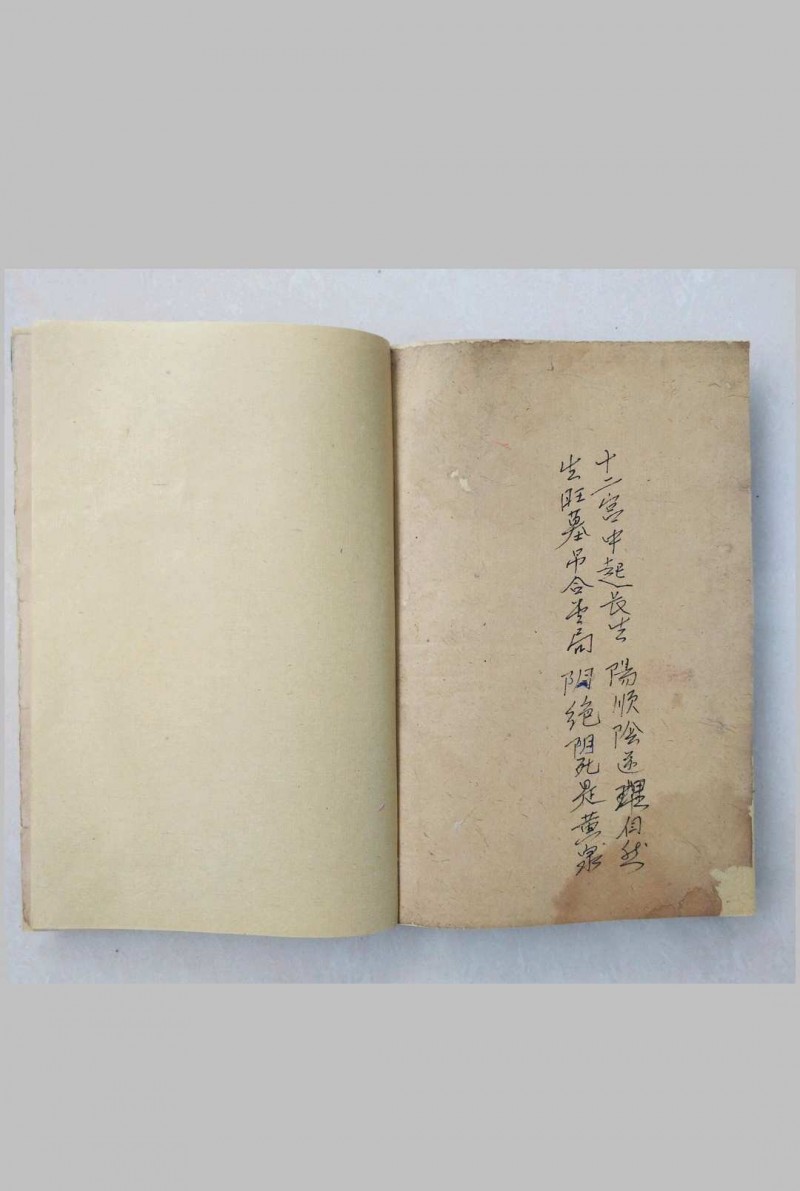 十二宫中起长生 陽顺陰逆理自然
生旺墓吊合堂局 阳绝阴死是黄泉